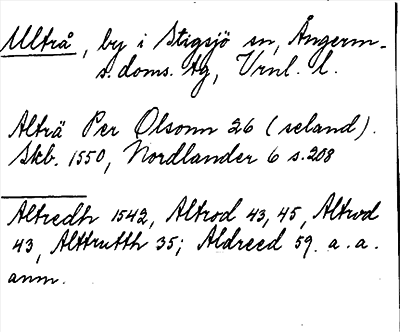 Ultrå, by i Stigsjö sn, Ångerm-
s. doms. tg, Vrnl. l.
Alträ Per Olsonn 26 (seland).
Skb. 1550, Nordlander 6 s. 208
Altredh 1542, Altrod 43, 45, Altrod
43, Alttrutth 35; Aldreed 59. a. a.
anm.